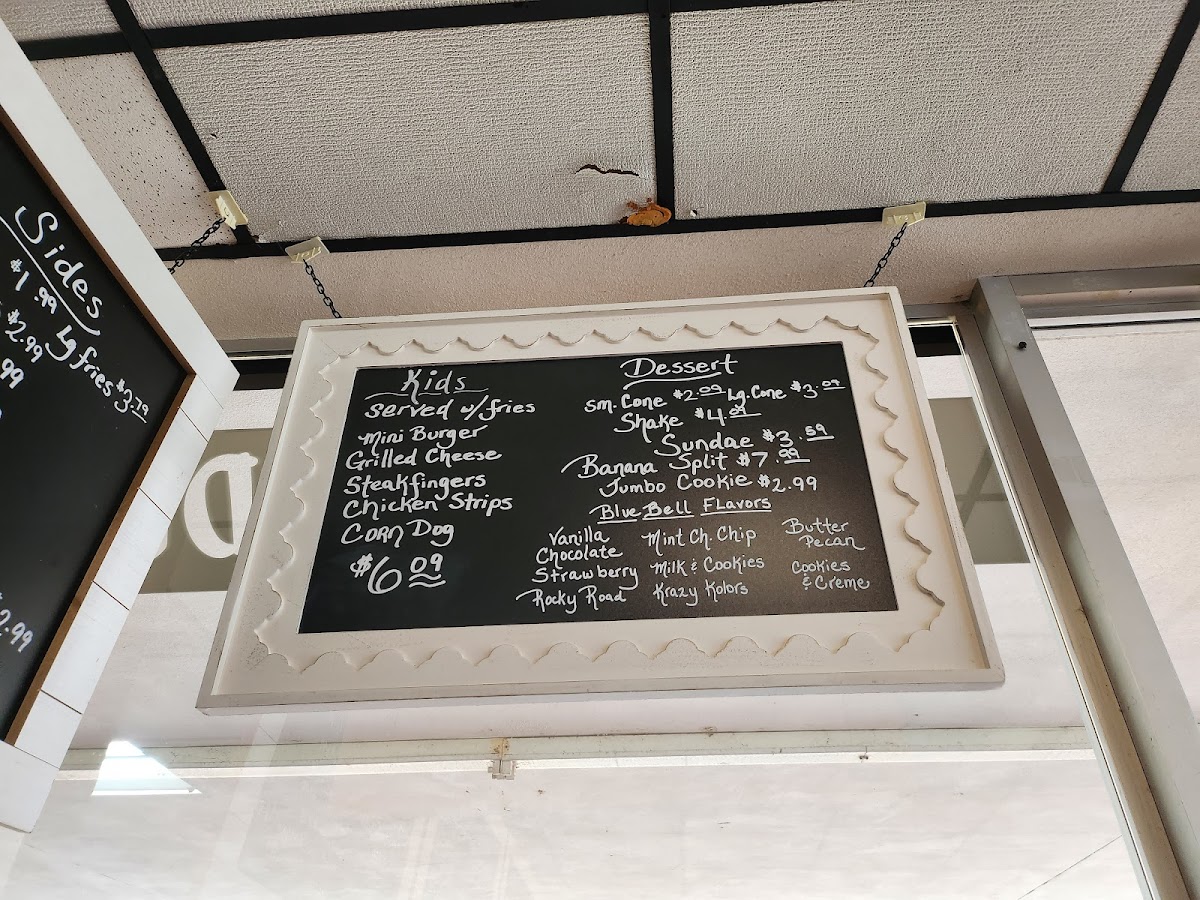 Sides
$1.99 Lg fries $3.79
$2.99
.99
2.99
Kids
served w/fries
Mini Burger
Grilled Cheese
Steakfingers
Chicken Strips
Corn Dog
$6.09
Dessert
sm. Cone $2.09 Lg. Cone $3.09
Shake $4.09
Sundae $3.59
Banana Split $7.99
Jumbo Cookie $2.99
Blue Bell Flavors
Vanilla
Chocolate
Strawberry
Rocky Road
Mint Ch. Chip
Milk & Cookies
Krazy Kolors
Butter
Pecan
Cookies
& Creme